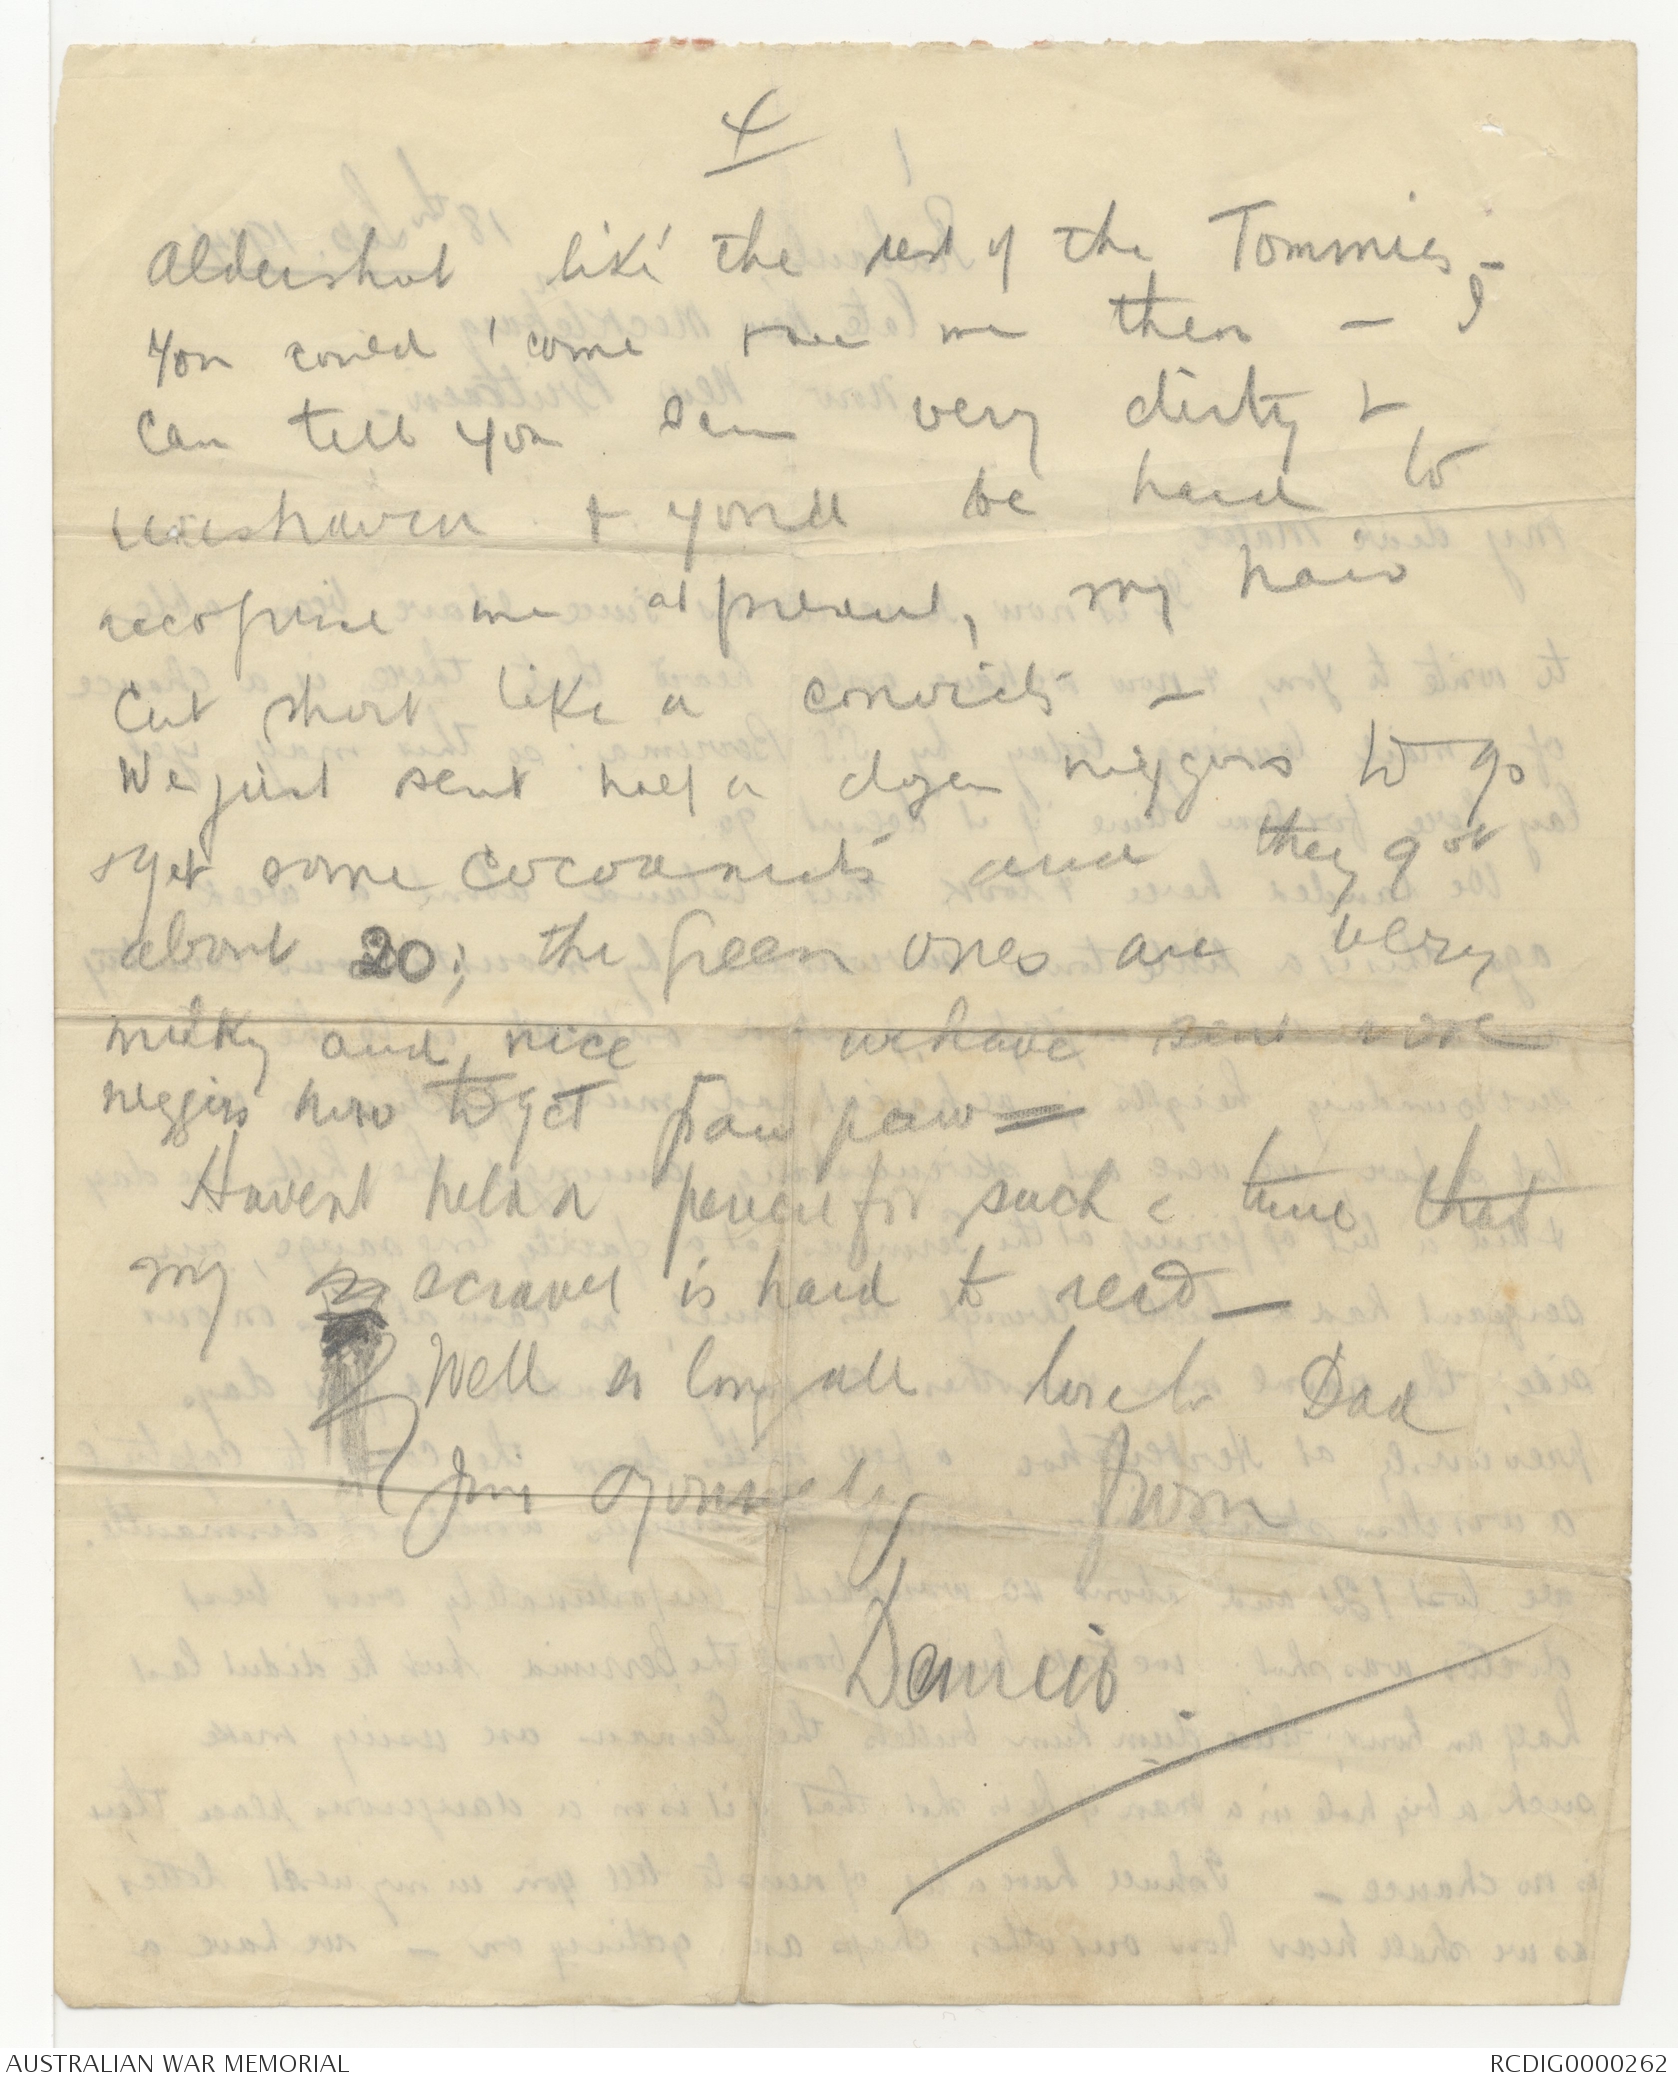 4
Aldershot like the rest of the Tommies, -
you could come & see me then - I
Can tell you I am very dirty &
unshaven & you'd be hard to
recognise me at present, my hair
Cut short like a convicts -
We just sent half a dozen niggers to go
& get some cocoanuts and they got
about 20; the green ones are very
milky and nice we have sent more
niggers now to get paw paw =
Havent held a pencil for such a time that
my scrawl is hard to read -
Well so long all love to Dad
from
AUSTRALIAN WAR MEMORIAL
RCDIG0000262